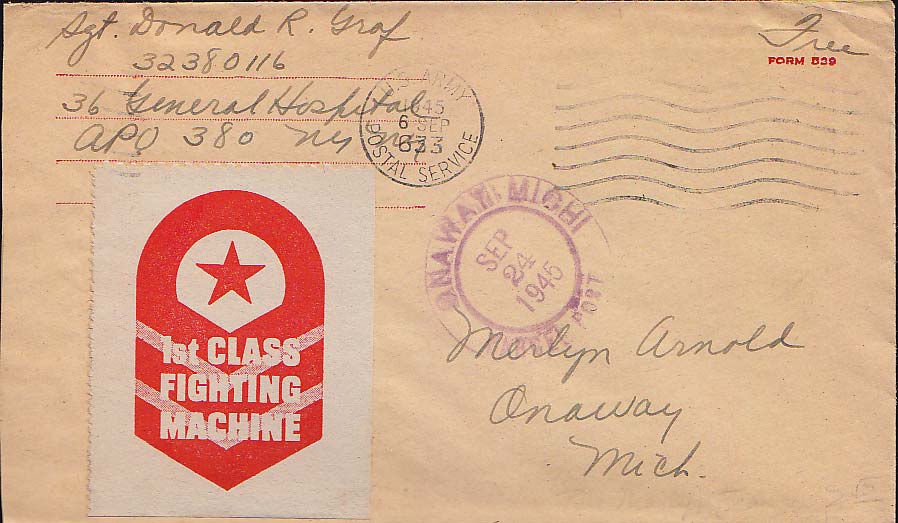 Sgt. Donald R. Graf
32380116
36 General Hospital
APO 380 NY NY
Free
FORM 539
U.S. ARMY
1945
6 SEP
633
POSTAL SERVICE
ONAWAY, MICH
SEP
24
1945
POST
1st CLASS
FIGHTING
MACHINE
Merlyn Arnold
Onaway
Mich.